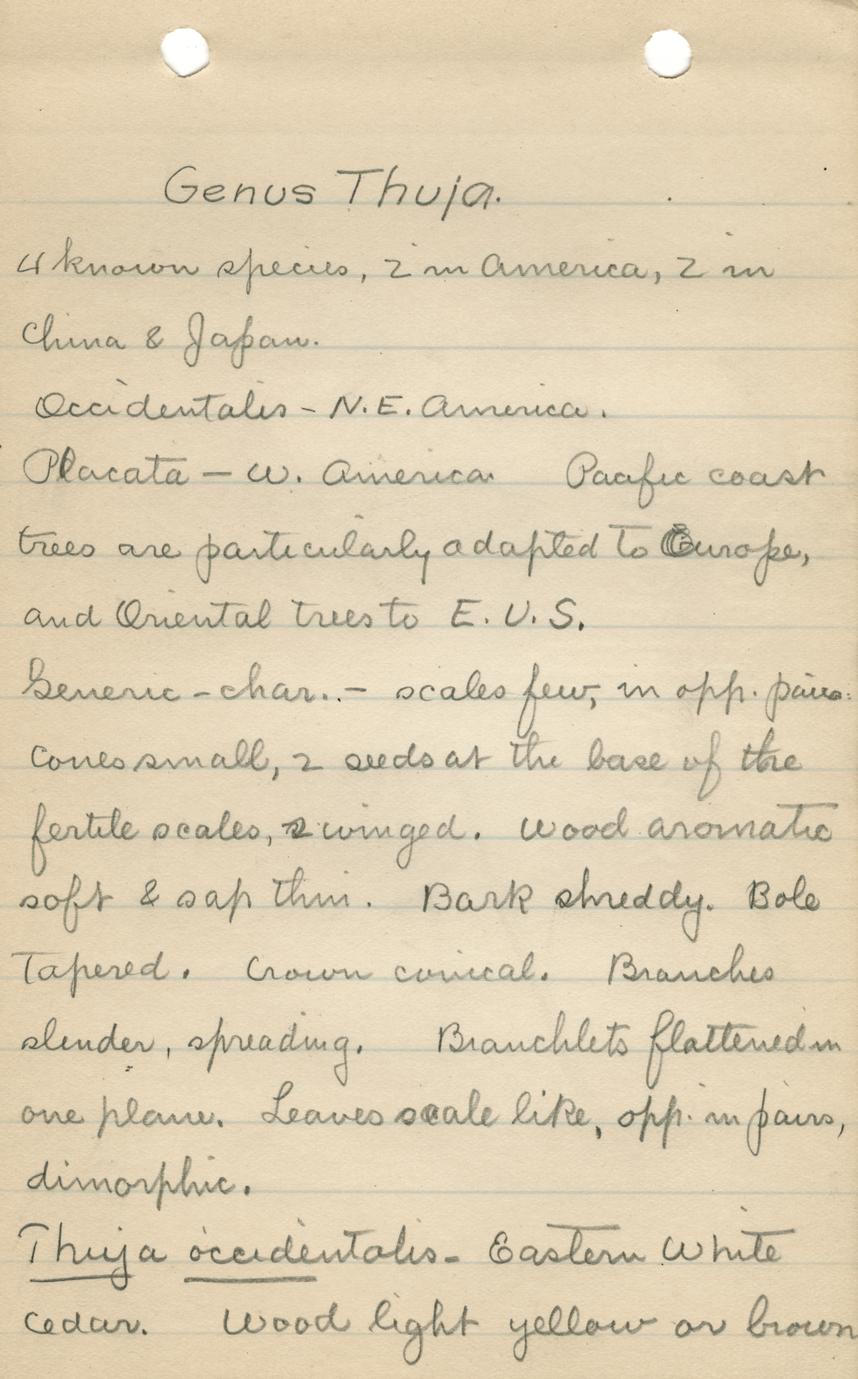 Genus Thuja.
4 known species, 2 in America, 2 in
China & Japan.
Occidentalis - N.E. America.
Placata - W. America Pacific coast
trees are particularly adapted to Europe,
and Oriental trees to E. U. S.
Generic - char. - scales few, in opp. pairs.
Cones small, 2 seeds at the base of the
fertile scales, 2 winged. Wood aromatic
soft & sap thin. Bark shreddy. Bole
Tapered. Crown conical. Branches
slender, spreading. Branchlets flattened in
one plane. Leaves scale like, opp. in pairs,
dimorphic.
Thuja occidentalis - Eastern White
Cedar. Wood light yellow or brown